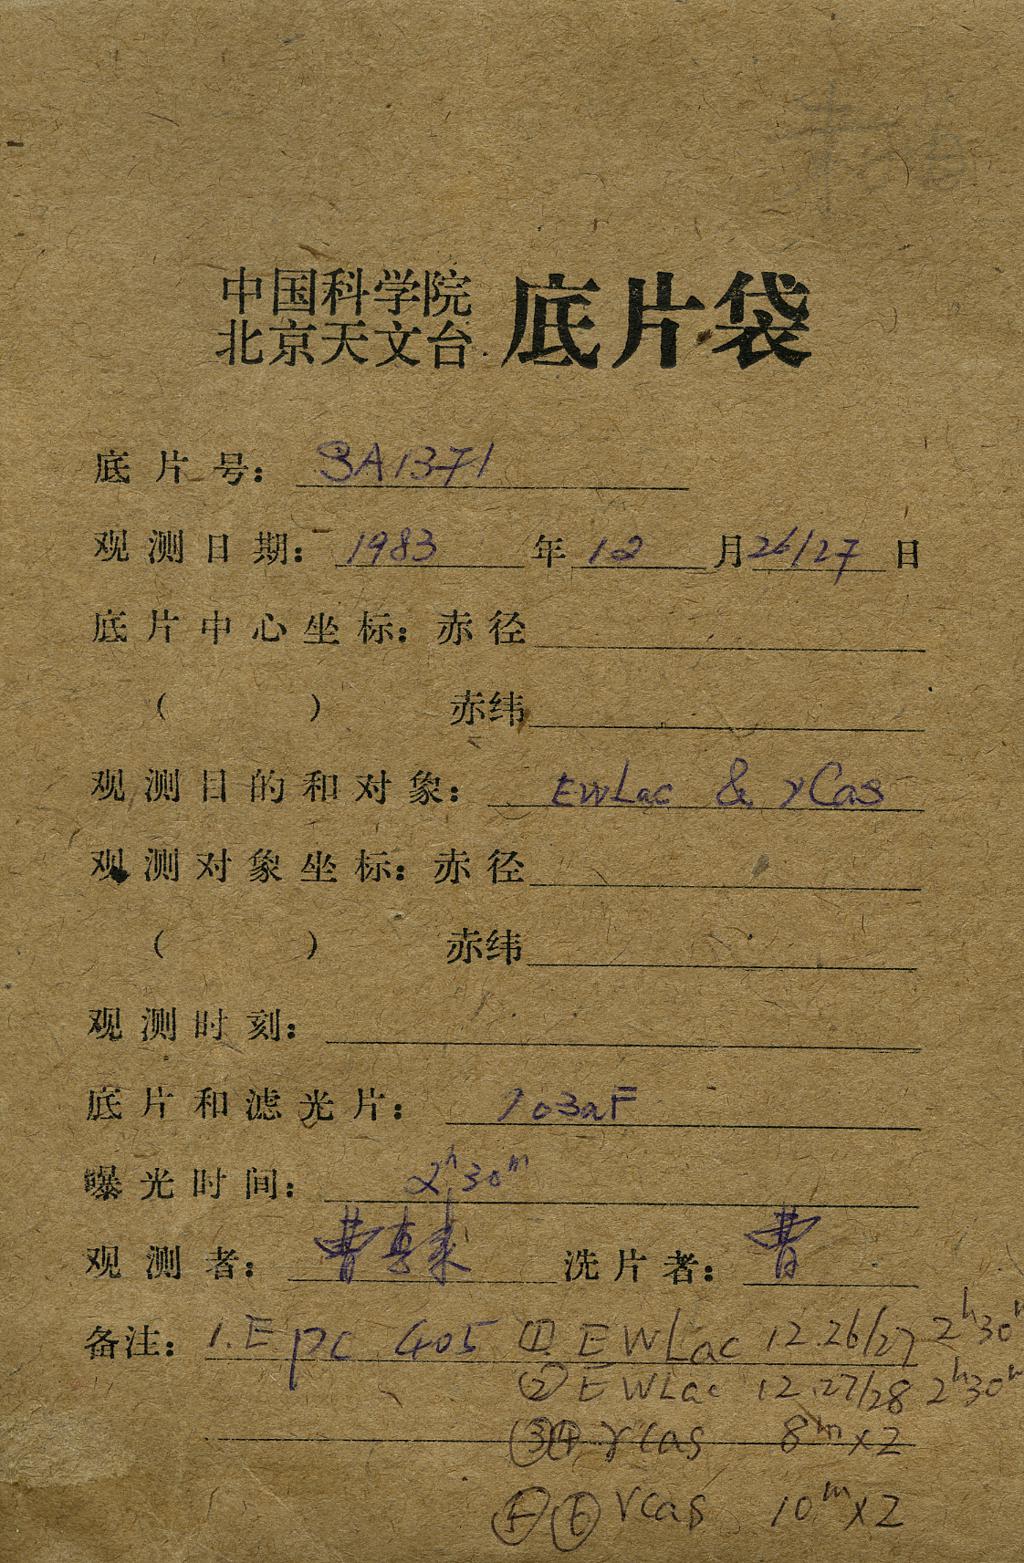 中国科学院
北京天文台 底片袋
底片号： SA1371
观测日期： 1983 年 12 月 26/27 日
底片中心坐标：赤径
（ ） 赤纬
观测目的和对象： EWLac & γCas
观测对象坐标：赤径
（ ） 赤纬
观测时刻：
底片和滤光片： 103aF
曝光时间： 2h30m
观测者： 曹 洗片者： 曹
备注： 1. E pc 405 ① EWLac 12.26/27 2h30m
② EWLac 12.27/28 2h30m
③④ γCas 8m×2
⑤⑥ γCas 10m×2